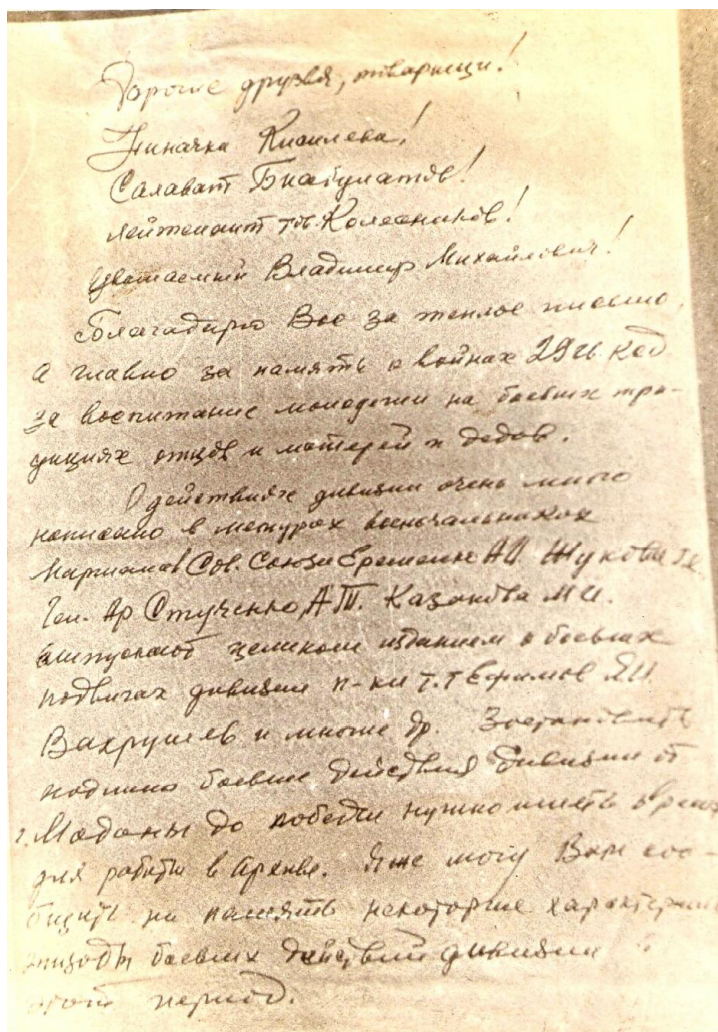 Дорогие друзья, товарищи!
Ниночка Киселева!
Салават Биабулатов!
лейтенант тов. Колесников!
Уважаемый Владимир Михайлович!
Благодарю Вас за теплое письмо,
а главно за память о войнах 29 гв. кСд
за воспитание молодежи на боевых тра-
дициях отцов и матерей и дедов.
О действиях дивизии очень много
написано в мемуарах военачальников
Маршалов Сов. Союза Еременко А.И. Жукова Г.К.
Ген. Ар Стученко, А.Т. Казакова М.И.
выпускают целиком издании о боевых
подвигах дивизии п-ки т.т Ефимов Я.И
Вахрушев и многие др.
подлино боевые действия дивизии от
до победы нужно иметь время
для работы в Архиве. Я же могу Вам соо-
бщить на память некоторые характерные
эпизоды боевых действий дивизии
этот период.